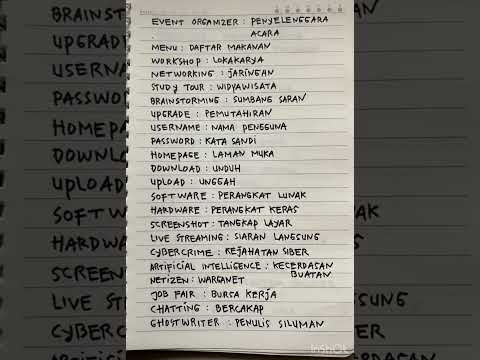 EVENT ORGANIZER : PENYELENGGARA
ACARA
MENU : DAFTAR MAKANAN
WORKSHOP : LOKAKARYA
NETWORKING : JARINGAN
STUDY TOUR : WIDYAWISATA
BRAINSTORMING : SUMBANG SARAN
UPGRADE : PEMUTAHIRAN
USERNAME : NAMA PENGGUNA
PASSWORD : KATA SANDI
HOMEPAGE : LAMAN MUKA
DOWNLOAD : UNDUH
UPLOAD : UNGGAH
SOFTWARE : PERANGKAT LUNAK
HARDWARE : PERANGKAT KERAS
SCREENSHOT : TANGKAP LAYAR
LIVE STREAMING : SIARAN LANGSUNG
CYBERCRIME : KEJAHATAN SIBER
ARTIFICIAL INTELLIGENCE : KECERDASAN
BUATAN
NETIZEN : WARGANET
JOB FAIR : BURSA KERJA
CHATTING : BERCAKAP
GHOSTWRITER : PENULIS SILUMAN